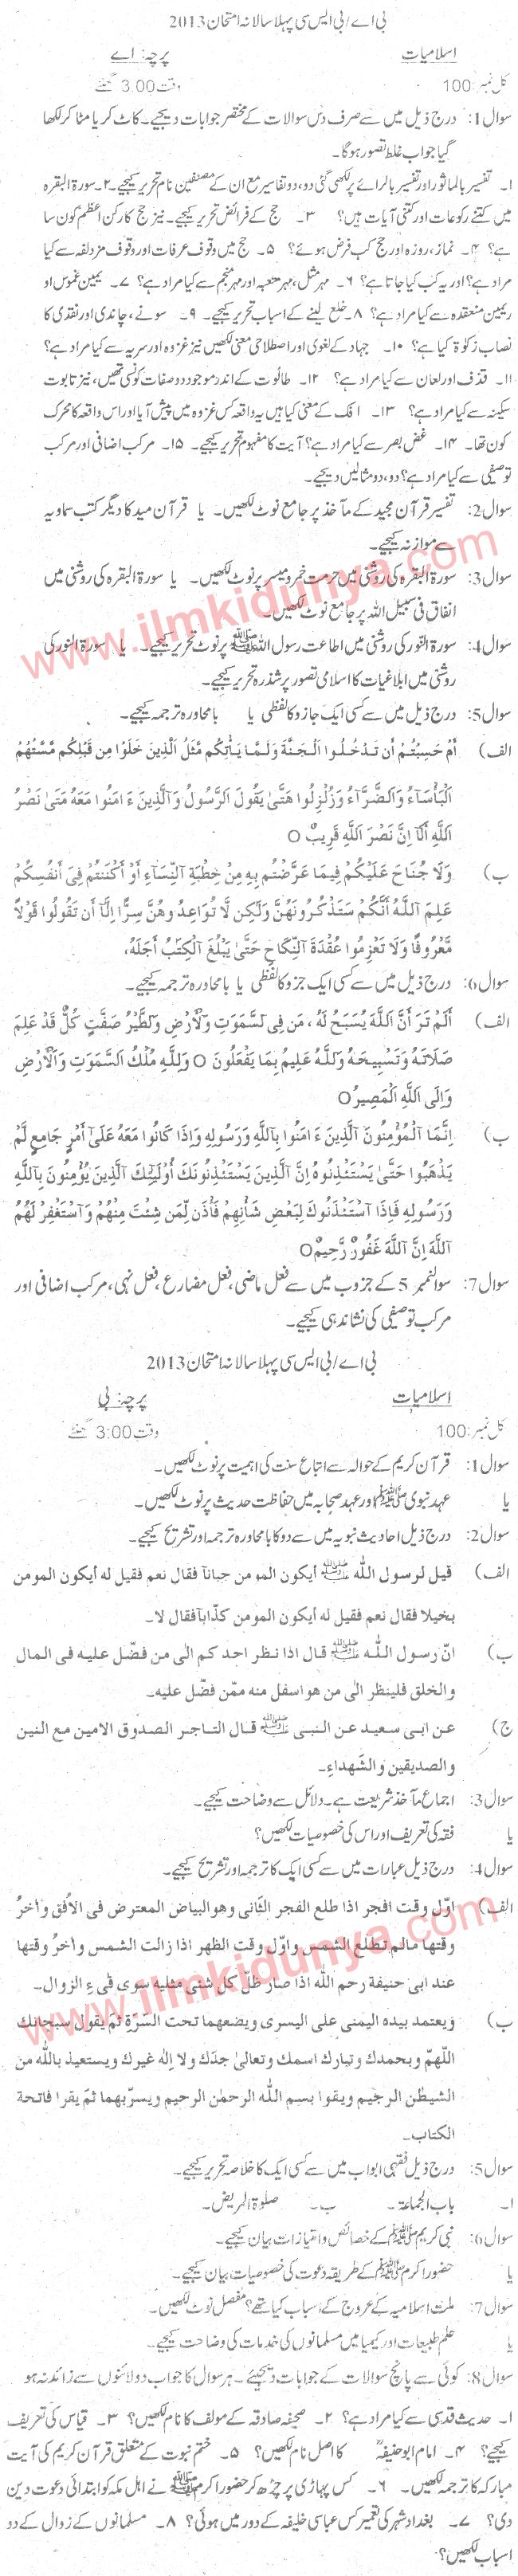 بی اے/بی ایس سی پہلا سالانہ امتحان 2013
اسلامیات پرچہ: اے
کل نمبر: 100 وقت 3.00 گھنٹے
سوال 1: درج ذیل میں سے صرف دس سوالات کے مختصر جوابات دیجیے۔ کاٹ کر یا مٹا کر لکھا
گیا جواب غلط تصور ہوگا۔
۱۔ تفسیر بالماثور اور تفسیر بالرائے پر لکھی گئی دو، دو تفاسیر مع ان کے مصنفین نام تحریر کیجیے۔ ۲۔ سورۃ البقرہ
میں کتنے رکوعات اور کتنی آیات ہیں؟ ۳۔ حج کے فرائض تحریر کیجیے۔ نیز حج کا رکن اعظم کون سا
ہے؟ ۴۔ نماز، روزہ اور حج کب فرض ہوئے؟ ۵۔ حج میں وقوف عرفات اور وقوف مزدلفہ سے کیا
مراد ہے؟ اور یہ کب کیا جاتا ہے؟ ۶۔ مہر مثل، مہر متعہ اور مہر منجم سے کیا مراد ہے؟ ۷۔ یمین غموس اور
ریمین منعقدہ سے کیا مراد ہے؟ ۸۔ خلع لینے کے اسباب تحریر کیجیے۔ ۹۔ سونے، چاندی اور نقدی کا
نصاب زکوٰۃ کیا ہے؟ ۱۰۔ جہاد کے لغوی اور اصطلاحی معنی لکھیں نیز غزوہ اور سریہ سے کیا مراد ہے؟
۱۱۔ قذف اور لعان سے کیا مراد ہے؟ ۱۲۔ طالوت کے اندر موجود دو صفات کونسی تھیں، نیز تابوت
سکینہ سے کیا مراد ہے؟ ۱۳۔ افک کے معنی کیا ہیں یہ واقعہ کس غزوہ میں پیش آیا اور اس واقعہ کا محرک
کون تھا۔ ۱۴۔ غض بصر سے کیا مراد ہے؟ آیت کا مفہوم تحریر کیجیے۔ ۱۵۔ مرکب اضافی اور مرکب
توصیفی سے کیا مراد ہے؟ دو، دو مثالیں دیجیے۔
سوال 2: تفسیر قرآن مجید کے مآخذ پر جامع نوٹ لکھیں۔ یا قرآن مید کا دیگر کتب سماویہ
سے موازنہ کیجیے۔
سوال 3: سورۃ البقرہ کی روشنی میں حرمت خمر و میسر پر نوٹ لکھیں۔ یا سورۃ البقرہ کی روشنی میں
انفاق فی سبیل اللہ پر جامع نوٹ لکھیں۔
سوال 4: سورۃ النور کی روشنی میں اطاعت رسول اللہ ﷺ پر نوٹ تحریر کیجیے۔ یا سورۃ النور کی
روشنی میں ابلاغیات کا اسلامی تصور پر شذرہ تحریر کیجیے۔
سوال 5: درج ذیل میں سے کسی ایک جازو کا لفظی یا بامحاورہ ترجمہ کیجیے۔
الف) أَمْ حَسِبْتُمْ أَن تَدْخُلُوا الْجَنَّةَ وَلَمَّا يَأْتِكُم مَّثَلُ الَّذِينَ خَلَوْا مِن قَبْلِكُم مَّسَّتْهُمُ
الْبَأْسَاءُ وَالضَّرَّاءُ وَزُلْزِلُوا حَتَّىٰ يَقُولَ الرَّسُولُ وَالَّذِينَ ءَامَنُوا مَعَهُ مَتَىٰ نَصْرُ
اللَّهِ أَلَا إِنَّ نَصْرَ اللَّهِ قَرِيبٌ O
ب) وَلَا جُنَاحَ عَلَيْكُمْ فِيمَا عَرَّضْتُم بِهِ مِنْ خِطْبَةِ النِّسَاءِ أَوْ أَكْنَنتُمْ فِي أَنفُسِكُمْ
عَلِمَ اللَّهُ أَنَّكُمْ سَتَذْكُرُونَهُنَّ وَلَٰكِن لَّا تُوَاعِدُوهُنَّ سِرًّا إِلَّا أَن تَقُولُوا قَوْلًا
مَّعْرُوفًا وَلَا تَعْزِمُوا عُقْدَةَ النِّكَاحِ حَتَّىٰ يَبْلُغَ الْكِتَٰبُ أَجَلَهُ،
سوال 6: درج ذیل میں سے کسی ایک جزو کا لفظی یا بامحاورہ ترجمہ کیجیے۔
الف) أَلَمْ تَرَ أَنَّ اللَّهَ يُسَبِّحُ لَهُ، مَن فِي السَّمَٰوَٰتِ وَالْأَرْضِ وَالطَّيْرُ صَٰفَّٰتٍ كُلٌّ قَدْ عَلِمَ
صَلَاتَهُ وَتَسْبِيحَهُ وَاللَّهُ عَلِيمٌ بِمَا يَفْعَلُونَ O وَلِلَّهِ مُلْكُ السَّمَٰوَٰتِ وَالْأَرْضِ
وَإِلَى اللَّهِ الْمَصِيرُ O
ب) إِنَّمَا الْمُؤْمِنُونَ الَّذِينَ ءَامَنُوا بِاللَّهِ وَرَسُولِهِ وَإِذَا كَانُوا مَعَهُ عَلَىٰ أَمْرٍ جَامِعٍ لَّمْ
يَذْهَبُوا حَتَّىٰ يَسْتَئْذِنُوهُ إِنَّ الَّذِينَ يَسْتَئْذِنُونَكَ أُولَٰئِكَ الَّذِينَ يُؤْمِنُونَ بِاللَّهِ
وَرَسُولِهِ فَإِذَا اسْتَئْذَنُوكَ لِبَعْضِ شَأْنِهِمْ فَأْذَن لِّمَن شِئْتَ مِنْهُمْ وَاسْتَغْفِرْ لَهُمُ
اللَّهَ إِنَّ اللَّهَ غَفُورٌ رَّحِيمٌ O
سوال 7: سوالنمبر 5 کے جزو ب میں سے فعل ماضی، فعل مضارع، فعل نہی، مرکب اضافی اور
مرکب توصیفی کی نشاندہی کیجیے۔
بی اے/بی ایس سی پہلا سالانہ امتحان 2013
اسلامیات پرچہ: بی
کل نمبر: 100 وقت 3:00 گھنٹے
سوال 1: قرآن کریم کے حوالہ سے اتباع سنت کی اہمیت پر نوٹ لکھیں۔
یا عہد نبوی ﷺ اور عہد صحابہ میں حفاظت حدیث پر نوٹ لکھیں۔
سوال 2: درج ذیل احادیث نبویہ میں سے دو کا بامحاورہ ترجمہ اور تشریح کیجیے۔
الف) قیل لرسول اللہ ﷺ أیکون المو من جباناً فقال نعم فقیل له أیکون المومن
بخیلا فقال نعم فقیل له أیکون المومن کذّابا فقال لا۔
ب) انّ رسول اللہ ﷺ قال اذا نظر احد کم الی من فضّل علیه فی المال
والخلق فلینظر الی من هو اسفل منه ممّن فضّل علیه۔
ج) عن ابی سعید عن النبی ﷺ قال التاجر الصدوق الامین مع النین
والصدیقین والشّهداءِ۔
سوال 3: اجماع مآخذ شریعت ہے۔ دلائل سے وضاحت کیجیے۔
یا فقہ کی تعریف اور اس کی خصوصیات لکھیں؟
سوال 4: درج ذیل عبارات میں سے کسی ایک کا ترجمہ اور تشریح کیجیے۔
الف) اوّل وقت افجر اذا طلع الفجر الثانی وهو البیاض المعترض فی الأفق وأخرُ
وقتها مالم تطلع الشمس واوّل وقت الظهر اذا زالت الشمس وأخرُ وقتها
عند ابی حنیفة رحم اللہ اذا صار ظل کل شئی مثلیه سوی فیءِ الزوال۔
ب) ویعتمد بیده الیمنی علی الیسری ویضعهما تحت السّرّة ثمّ یقول سبحانك
اللهمّ وبحمدك وتبارك اسمك وتعالیٰ جدّك ولا إله غیرك ویستعیذ باللہ من
الشیطٰن الرجیم ویقوا بسم اللہ الرحمٰن الرحیم ویسرّ بهما ثمّ یقرا فاتحة
الکتاب۔
سوال 5: درج ذیل فقہی ابواب میں سے کسی ایک کا خلاصہ تحریر کیجیے۔
ا۔ باب الجماعۃ۔ ب۔ صلوٰۃ المریض۔
سوال 6: نبی کریم ﷺ کے خصائص و امتیازات بیان کیجیے۔
یا حضور اکرم ﷺ کے طریقہ دعوت کی خصوصیات بیان کیجیے۔
سوال 7: ملت اسلامیہ کے عروج کے اسباب کیا تھے؟ مفصل نوٹ لکھیں۔
یا علم طبیعات اور کیمیا میں مسلمانوں کی خدمات کی وضاحت کیجیے۔
سوال 8: کوئی سے پانچ سوالات کے جوابات دیجیئے۔ ہر سوال کا جواب دو لائنوں سے زائد نہ ہو
۱۔ حدیث قدسی سے کیا مراد ہے؟ ۲۔ صحیفہ صادقہ کے مولف کا نام لکھیں؟ ۳۔ قیاس کی تعریف
کیجیے؟ ۴۔ امام ابو حنیفہؒ کا اصل نام لکھیں؟ ۵۔ ختم نبوت کے متعلق قرآن کریم کی آیت
مبارکہ کا ترجمہ لکھیں۔ ۶۔ کس پہاڑی پر چڑھ کر حضور اکرم ﷺ نے اہل مکہ کو ابتدائی دعوت دین
دی؟ ۷۔ بغداد شہر کی تعمیر کس عباسی خلیفہ کے دور میں ہوئی؟ ۸۔ مسلمانوں کے زوال کے دو
اسباب لکھیں؟
www.ilmkidunya.com
www.ilmkidunya.com